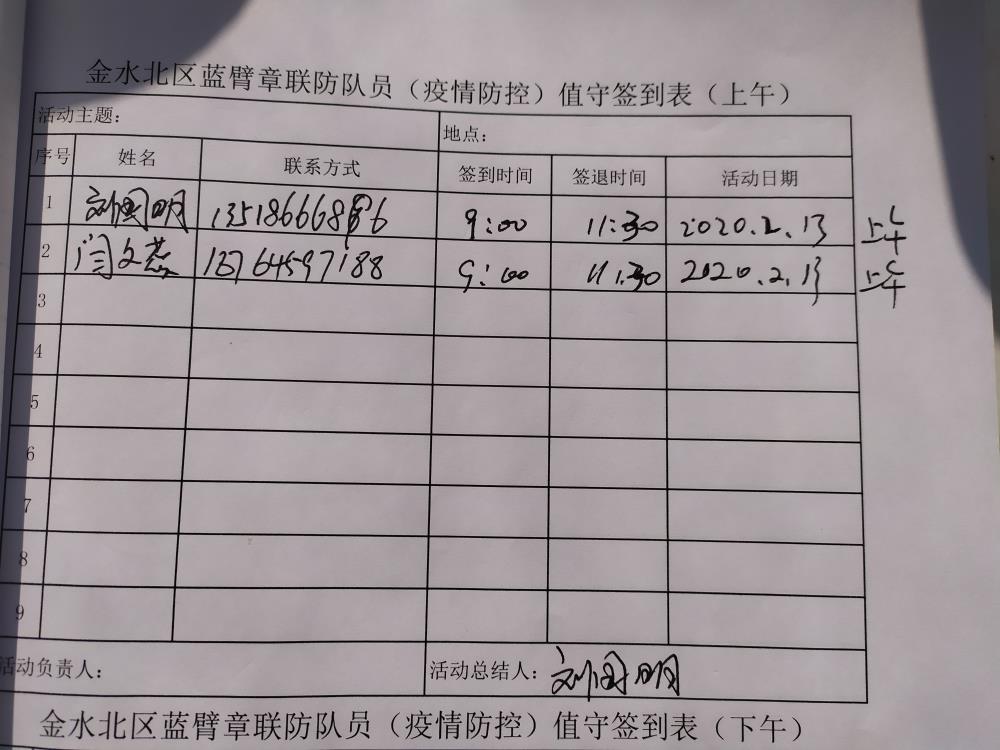 金水北区蓝臂章联防队员（疫情防控）值守签到表（上午）
活动主题： 地点：
序号 姓名 联系方式 签到时间 签退时间 活动日期
1 刘国明 9:00 11:30 2020.2.13 上午
2 闫文 15764597188 9:00 11:30 2020.2.13 上午
3
4
5
6
7
8
9
活动负责人： 活动总结人：刘国明
金水北区蓝臂章联防队员（疫情防控）值守签到表（下午）